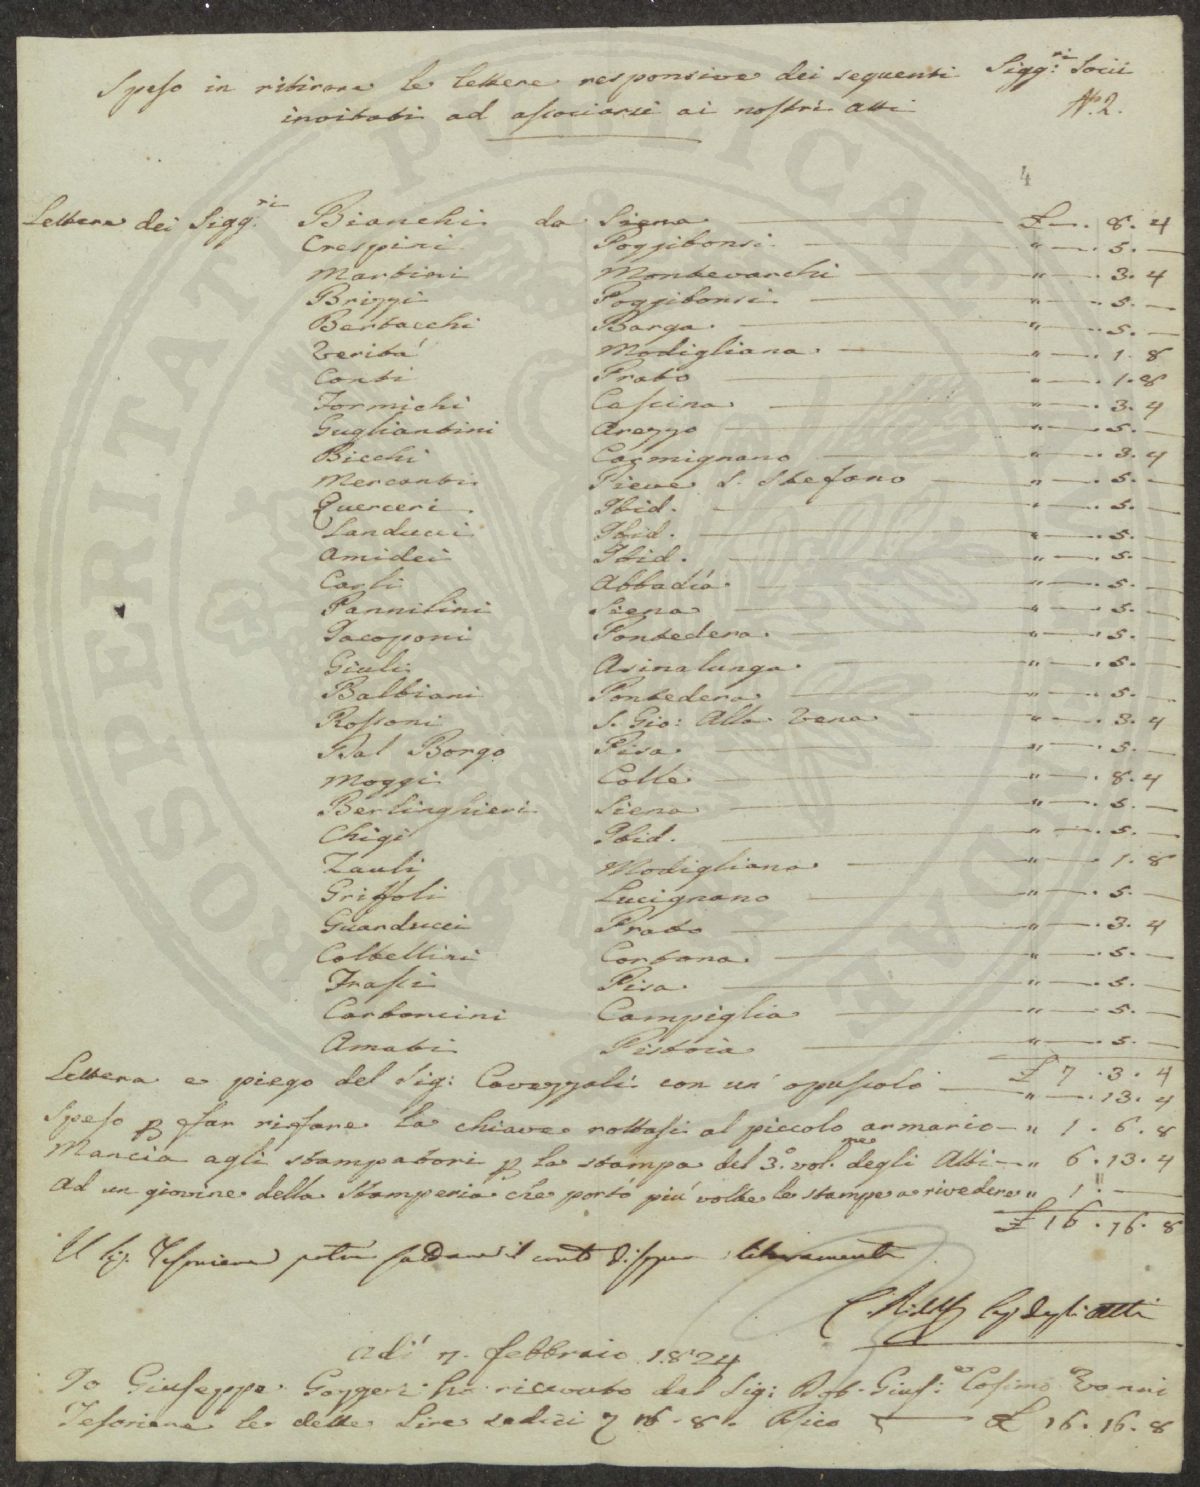 Spese in ritirare le lettere responsive dei seguenti Sigg:ri Socii
invitati ad associarsi ai nostri atti
N.2.
4
Lettere dei Sigg:ri Bianchi da Siena £ — . 8. 4
Crespini Poggibonsi " — . 5. —
Martini Montevarchi " — . 3. 4
Brizzi Poggibonsi " — . 5. —
Bertacchi Barga " — . 5. —
Verità Modigliana " — . 1. 8
Conti Prato " — . 1. 8
Formichi Cascina " — . 3. 4
Gugliantini Arezzo " — . 5. —
Bicchi Carmignano " — . 3. 4
Mercanti Pieve S. Stefano " — . 5. —
Querceri Ibid. " — . 5. —
Landucci Ibid. " — . 5. —
Amidei Ibid. " — . 5. —
Carli Abbadía " — . 5. —
Pannilini Siena " — . 5. —
Jacoponi Pontedera " — . 5. —
Giuli Asinalunga " — . 5. —
Balbiani Pontedera " — . 5. —
Rossoni S. Gio: Alla Vena " — . 3. 4
Dal Borgo Pisa " — . 5. —
Moggi Colle " — . 8. 4
Berlinghieri Siena " — . 5. —
Chigi Ibid. " — . 5. —
Zauli Modigliana " — . 1. 8
Griffoli Lucignano " — . 5. —
Guarducci Prato " — . 3. 4
Coltellini Cortona " — . 5. —
Frassi Pisa " — . 5. —
Carboncini Campiglia " — . 5. —
Amati Pistoia " — . 5. —
£ 7 . 3. 4
Lettera e piego del Sig: Cavezzali con un' opuscolo " — . 13. 4
Speso p far rifare la chiave rottasi al piccolo armario — " 1 . 6 . 8
Mancia agli stampatori p la stampa del 3.° vol.me degli Atti — " 6 . 13 . 4
Ad un giovine della Stamperia che portò piú volte le stampe a rivedere " 1 " —
£ 16 . 16 . 8
Il Sig. Tesoriere potrà saldare il conto liberamente
C. Ridolfi Seg. degli Atti
Adí 7. febbraio 1824
Io Giuseppe ho ricevuto dal Sig: Giusep: Cosimo Vanni
Tesoriere le dette Lire sedici 16 - 8. Dico — £ 16. 16. 8
PROSPERITATI PUBLICAE